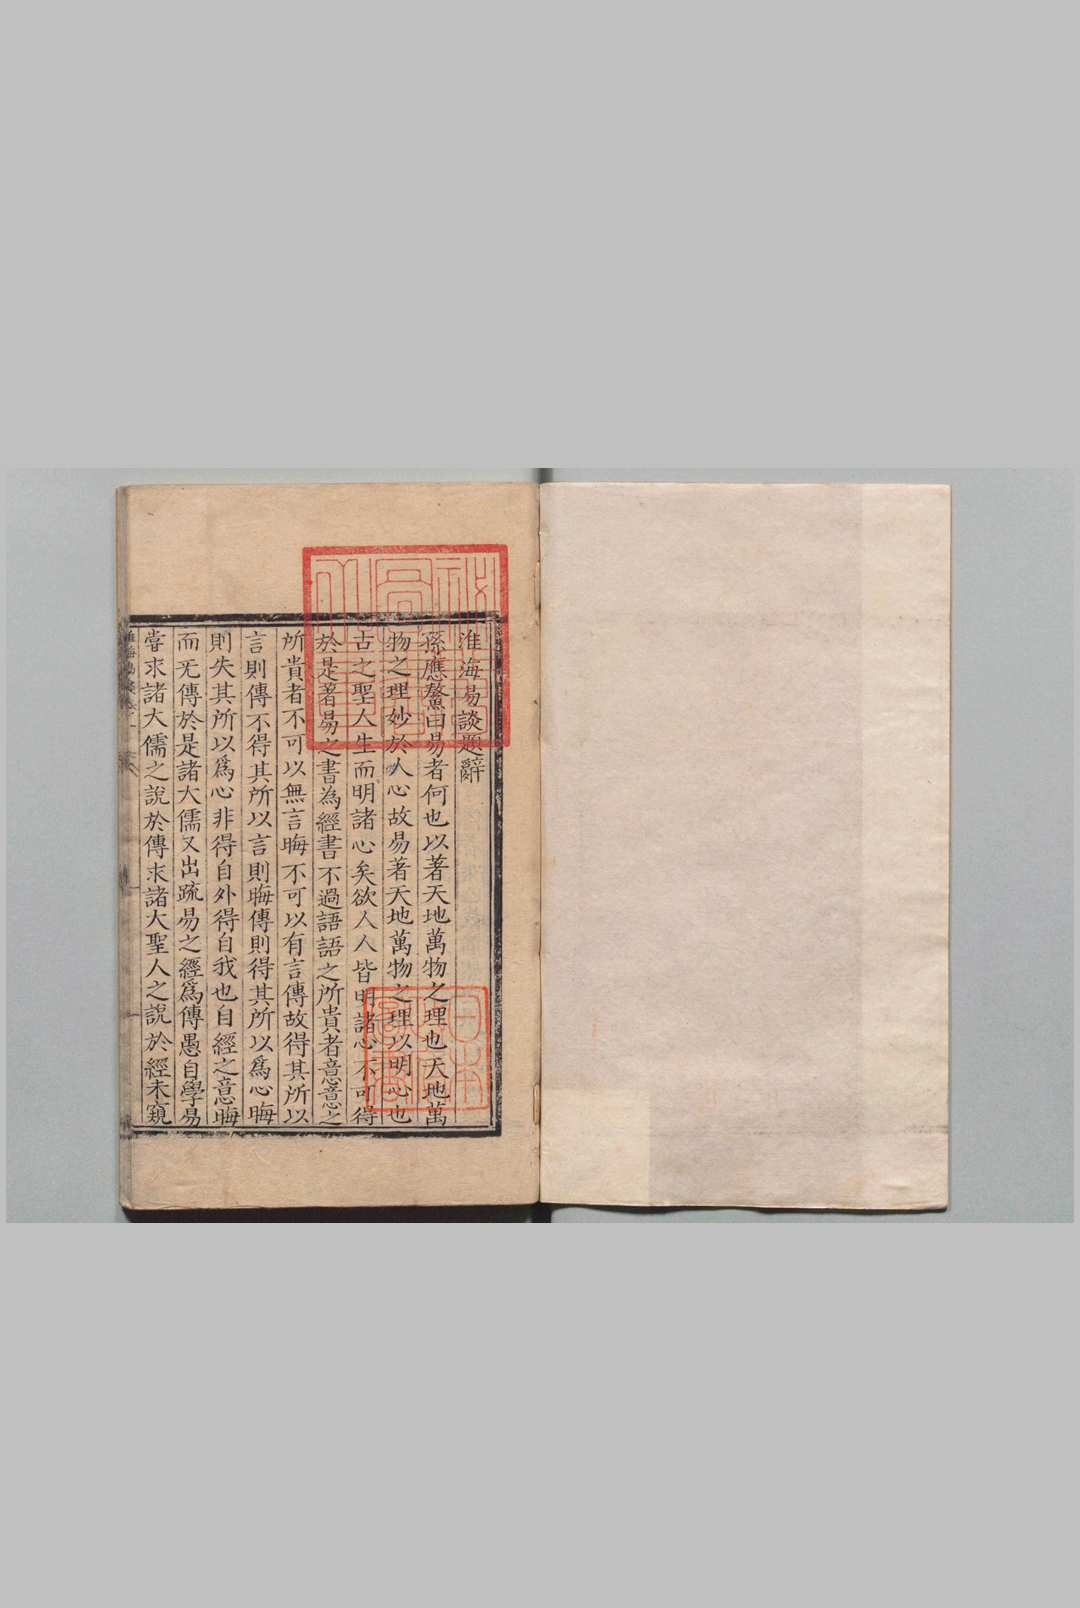 淮海易談題辭
孫應鰲曰易者何也以著天地萬物之理也天地萬
物之理妙於人心故易著天地萬物之理以明心也
古之聖人生而明諸心矣欲人人皆明諸心不可得
於是著易之書為經書不過語語之所貴者意意之
所貴者不可以無言晦不可以有言傳故得其所以
言則傳不得其所以言則晦傳則得其所以爲心晦
則失其所以爲心非得自外得自我也自經之意晦
而无傳於是諸大儒又出疏易之經爲傳愚自學易
嘗求諸大儒之說於傳求諸大聖人之說於經未窺